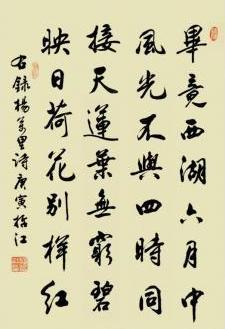 畢竟西湖六月中
風光不與四時同
接天蓮葉無窮碧
映日荷花别樣紅
右録楊萬里詩庚寅梧江